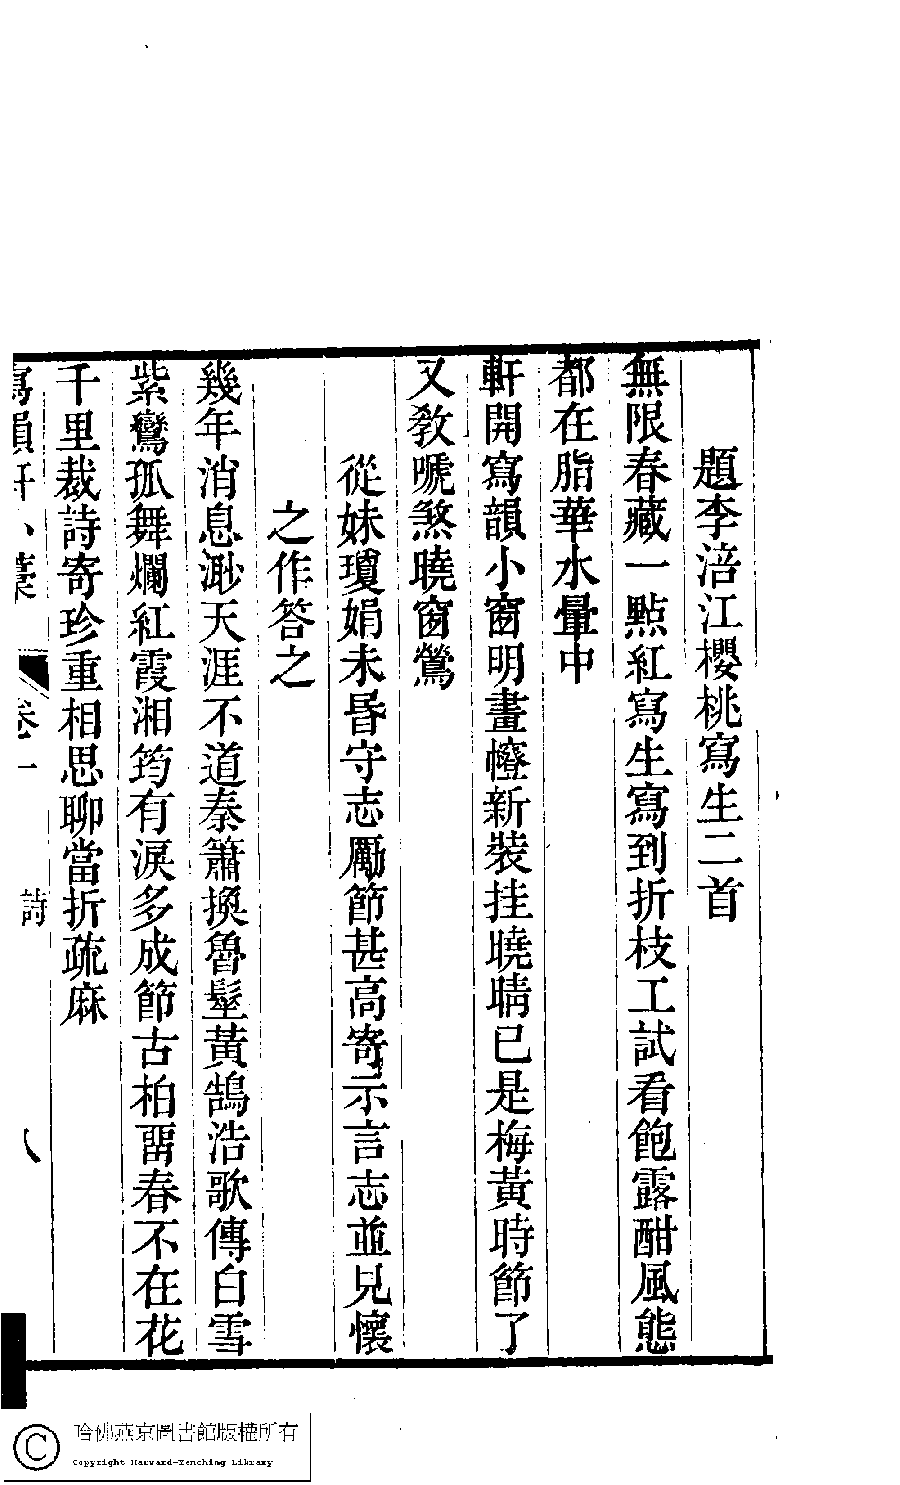 題李涪江櫻桃寫生二首
無限春藏一點紅寫生寫到折枝工試看飽露酣風態
都在脂華水暈中
軒開寫韻小窗明畫幰新裝挂曉晴已是梅黃時節了
又敎嗁煞曉窗鶯
從妹瓊娟未昬守志勵節甚高寄示言志並見懷
之作答之
幾年消息渺天涯不道秦簫換魯髽黃鵠浩歌傳白雪
紫鸞孤舞爛紅霞湘筠有淚多成節古柏畱春不在花
千里裁詩寄珍重相思聊當折疏麻
寫韻軒小藳
卷一
詩
八
哈佛燕京圖書館版權所有
Copyright Harvard-Yenching Library